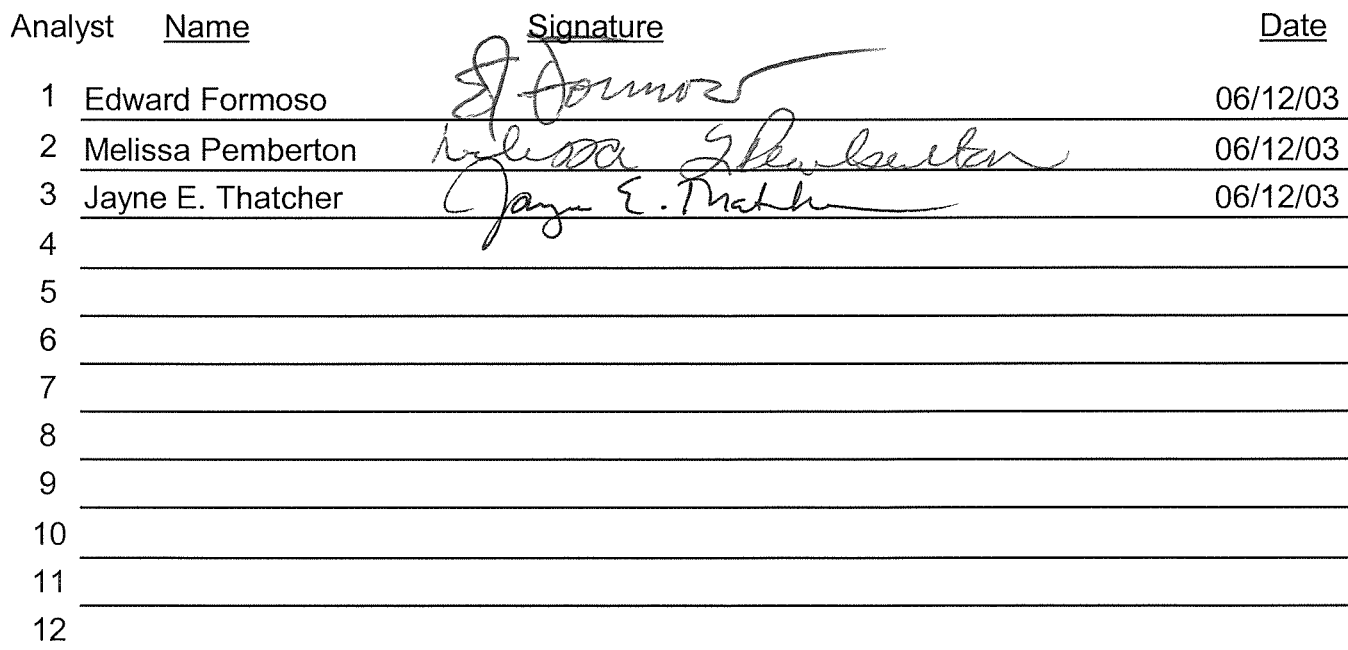 Analyst Name Signature Date
1 Edward Formoso Ed Formoso 06/12/03
2 Melissa Pemberton Melissa Pemberton 06/12/03
3 Jayne E. Thatcher Jayne E. Thatcher 06/12/03
4
5
6
7
8
9
10
11
12